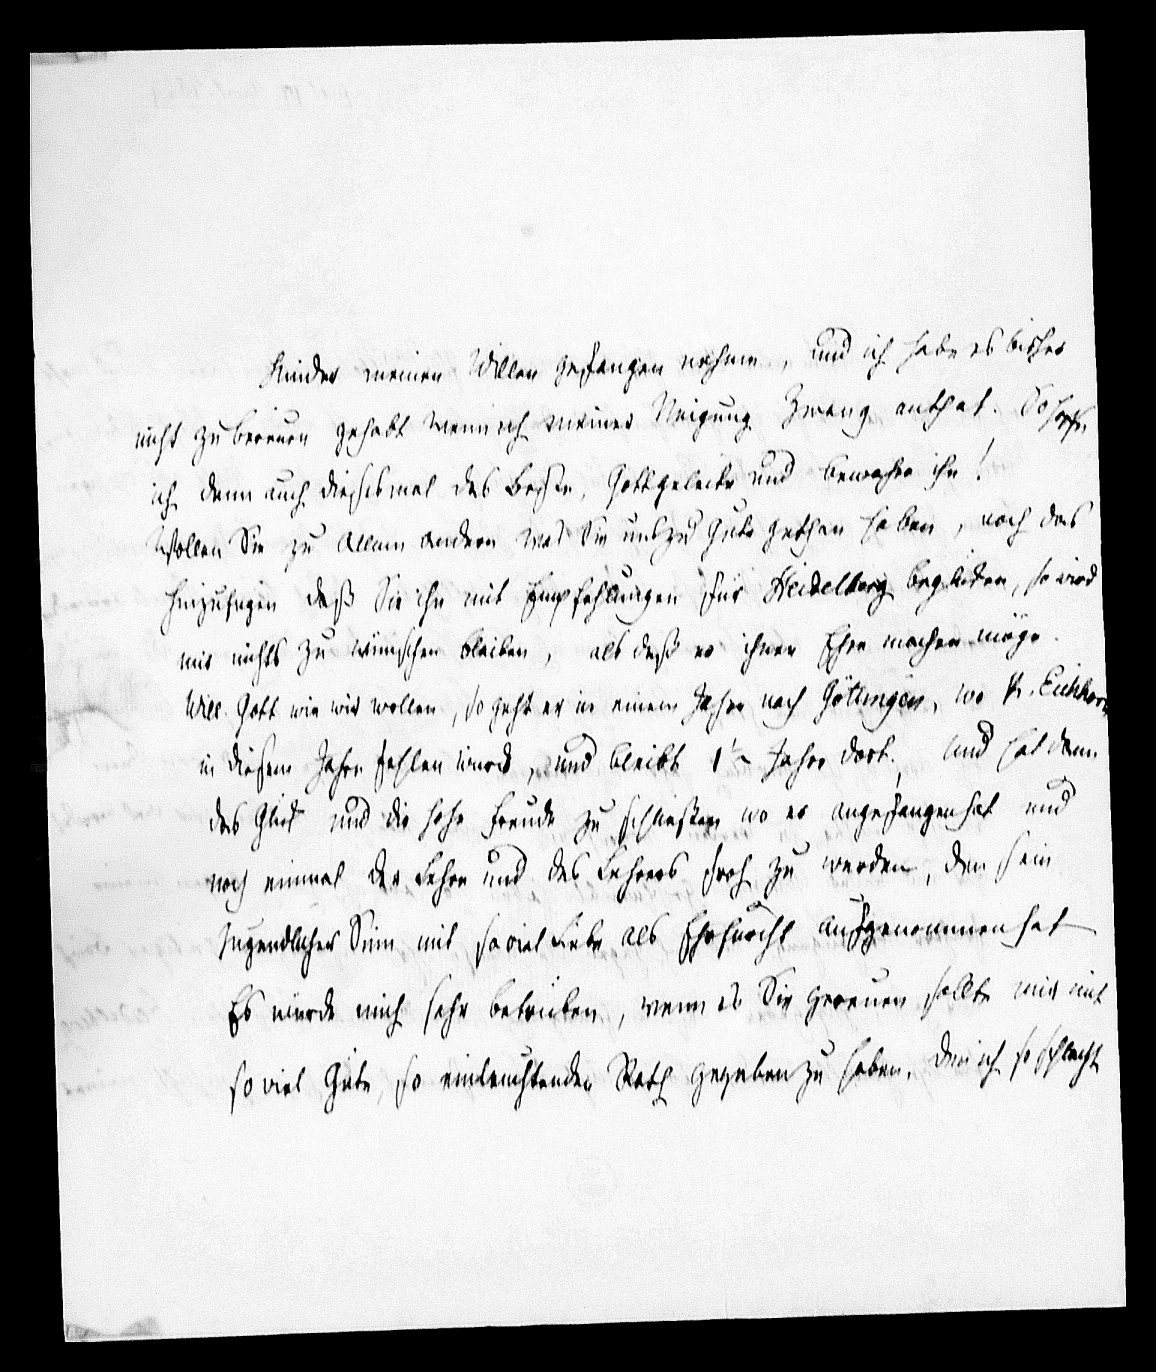 Kinder meinen Willen gefangen nehme, und ich habe es bisher
nicht zu bereuen gehabt wenn ich meiner Neigung Zwang anthat. So hoffe
ich denn auch diesesmal das Beste, Gott geleite und bewahre ihn!
Wollen Sie zu Allem andern was Sie uns zu Gute gethan haben, noch das
hinzufügen daß Sie ihn mit Empfehlungen für Heidelberg begleiten, so wird
mir nichts zu wünschen bleiben, als daß er ihnen Ehre machen möge.
Will Gott wie wir wollen, so geht er in einem Jahre nach Göttingen, wo Pr. Eichhorn
in diesem Jahre fehlen wird, und bleibt 1½ Jahre dort. Und hat dann
das Glück und die hohe Freude zu schließen wo er angefangen hat und
noch einmal der Lehre und des Lehrers froh zu werden, den sein
Jugendlicher Sinn mit so viel Liebe als Ehrfurcht aufgenommen hat
Es würde mich sehr betrüben, wenn es Sie gereuen sollte mir mit
so viel Güte, so einleuchtenden Rath gegeben zu haben, den ich so schlecht